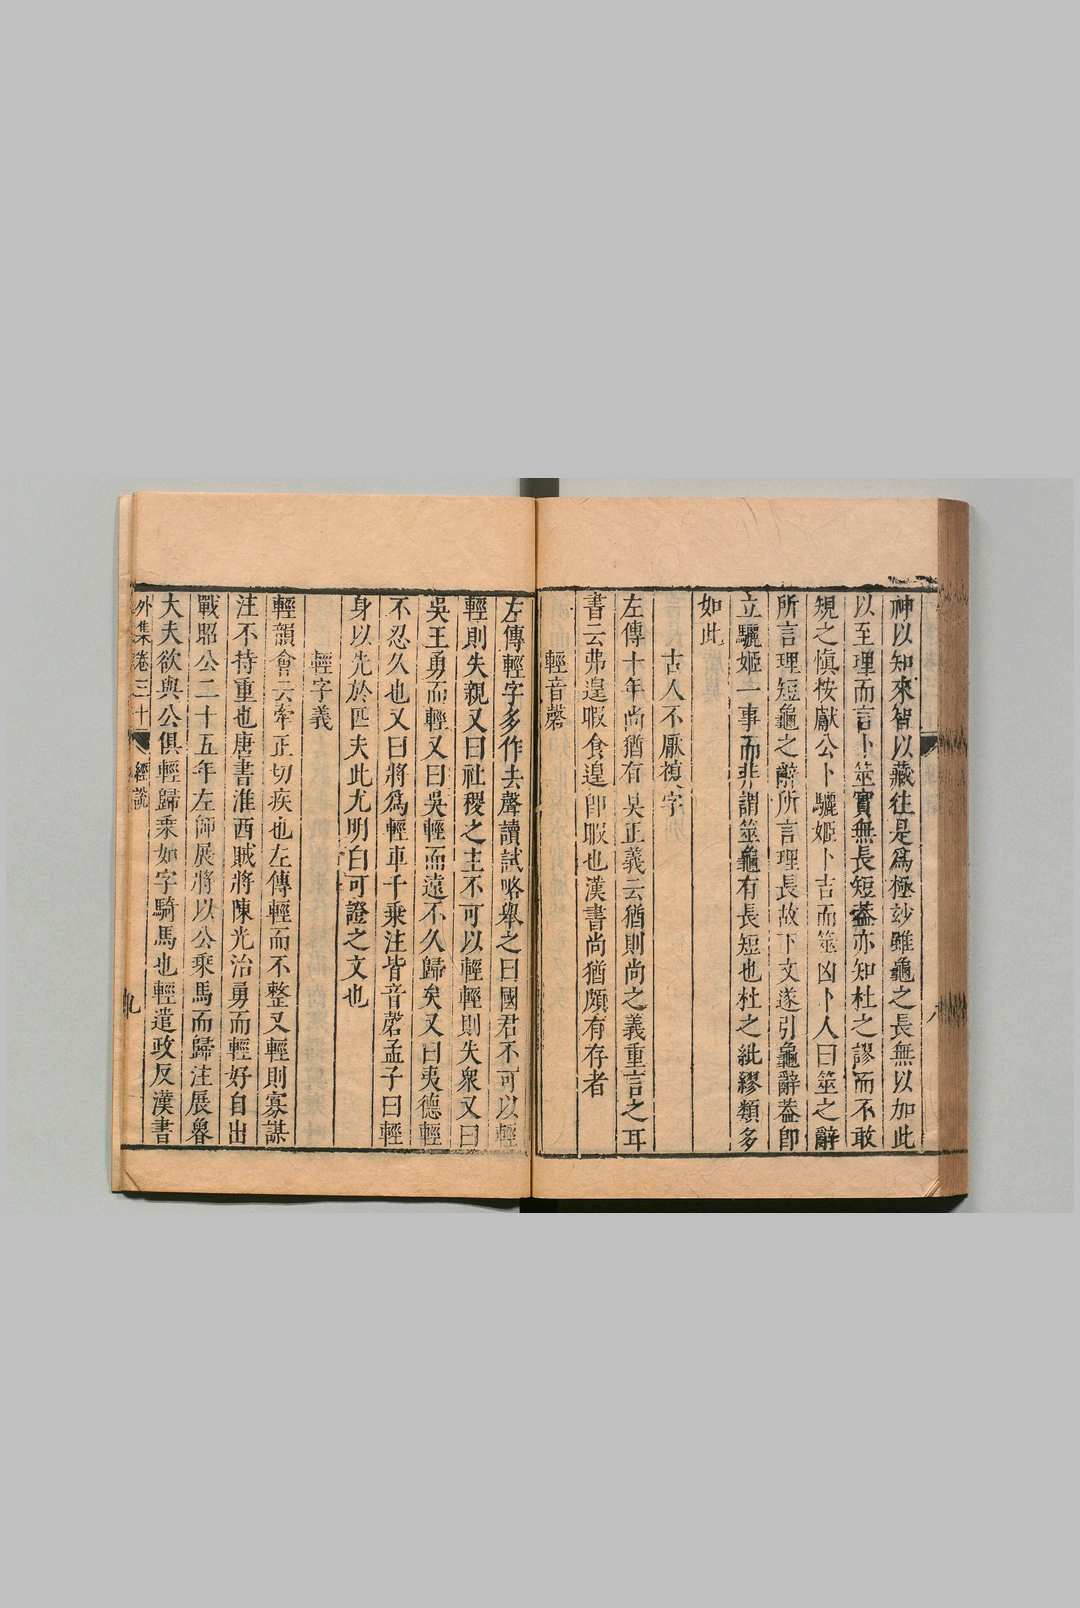 神以知來智以藏往是爲極玅雖龜之長無以加此
以至理而言卜筮實無長短葢亦知杜之謬而不敢
規之愼按獻公卜驪姬卜吉而筮凶卜人曰筮之辭
所言理短龜之辭所言理長故下文遂引龜辭葢卽
立驪姬一事而非謂筮龜有長短也杜之紕繆類多
如此
古人不厭複字
左傳十年尚猶有臭正義云猶則尚之義重言之耳
書云弗遑暇食遑卽暇也漢書尚猶頗有存者
輕音磬
左傳輕字多作去聲讀試略舉之曰國君不可以輕
輕則失親又曰社稷之主不可以輕輕則失衆又曰
吳王勇而輕又曰吳輕而遠不久歸矣又曰夷德輕
不忍久也又曰將爲輕車千乘注皆音磬孟子曰輕
身以先於匹夫此尤明白可證之文也
輕字義
輕韻會云牽正切疾也左傳輕而不整又輕則寡謀
注不持重也唐書淮西賊將陳光治勇而輕好自出
戰昭公二十五年左師展將以公乘馬而歸注展魯
大夫欲與公俱輕歸乘如字騎馬也輕遣政反漢書
外集卷三十 經說 九